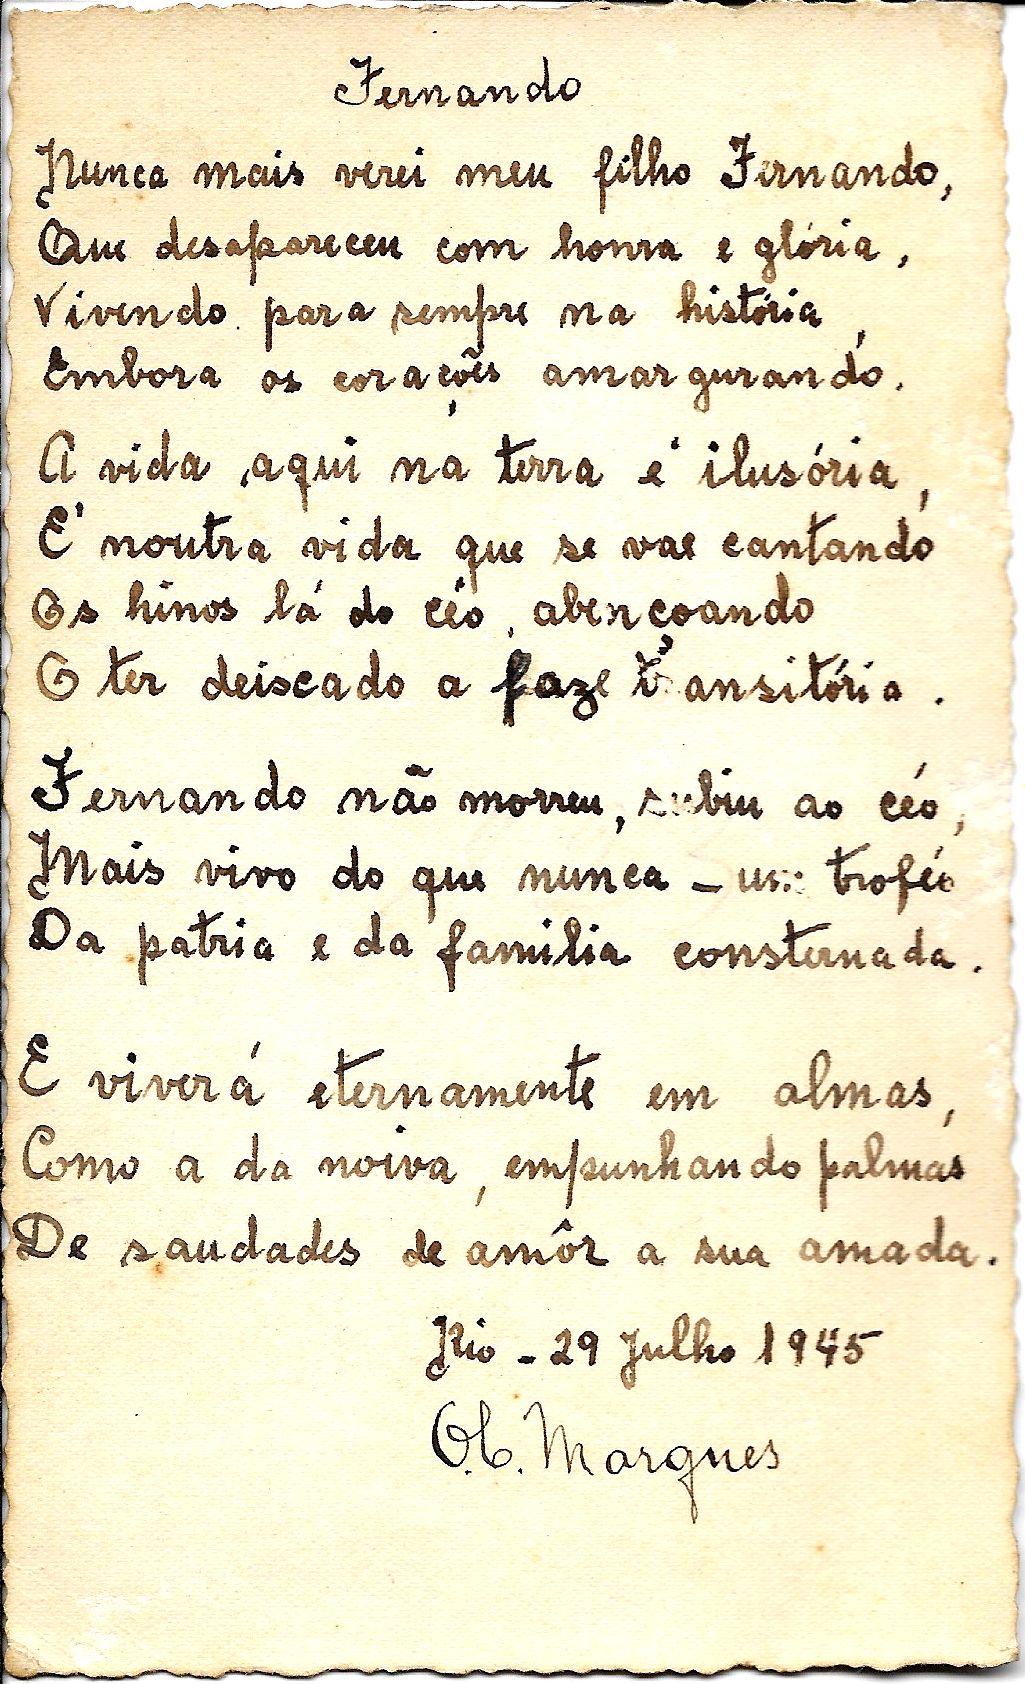 Fernando
Nunca mais verei meu filho Fernando,
Que desapareceu com honra e glória,
Vivendo para sempre na história,
Embora os corações amargurando.
A vida, aqui na terra é ilusória,
E' noutra vida que se vae cantando
Os hinos lá do céo, abençoando
O ter deiscado a faze transitória.
Fernando não morreu, subiu ao céo,
Mais vivo do que nunca - um troféo
Da patria e da familia consternada.
E viverá eternamente em almas,
Como a da noiva, empunhando palmas
De saudades de amôr a sua amada.
Rio - 29 Julho 1945
O. C. Marques